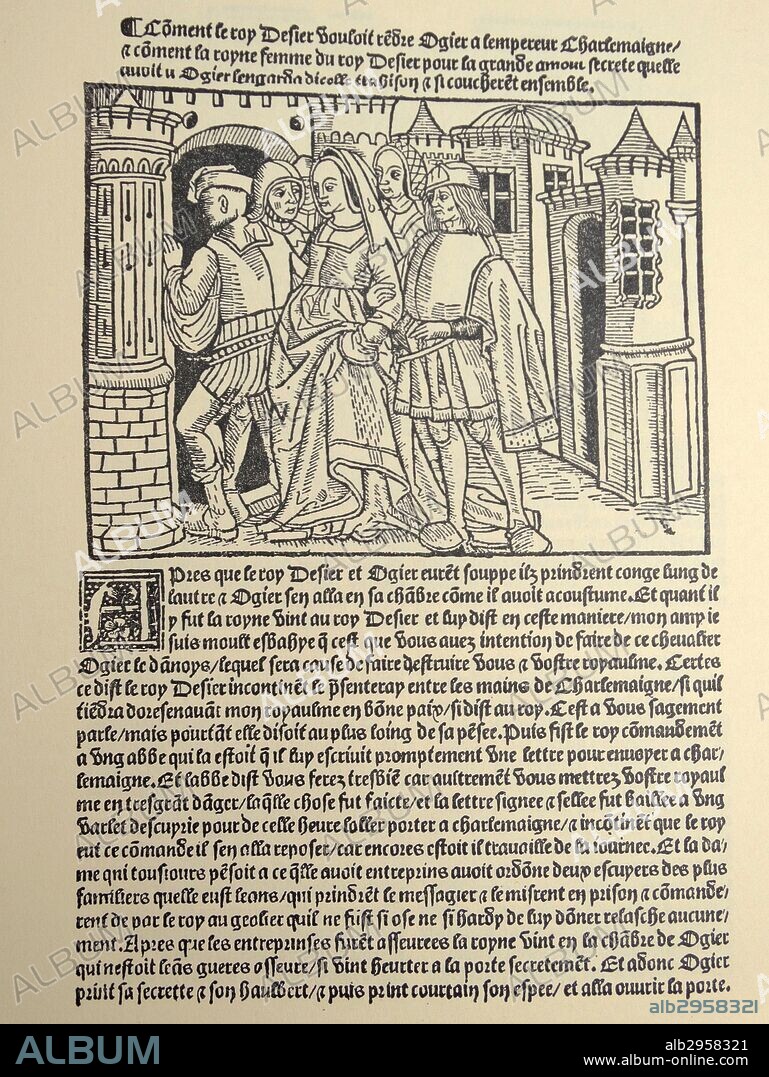 ¶ Cõment le roy Desier vouloit rẽdre Ogier a lempereur Charlemaigne/
⁊ cõment la royne femme du roy Desier pour la grande amour secrete quelle
avoit u Ogier lengarda dicelle trahison ⁊ si coucherẽt ensemble.
APres que le roy Desier et Ogier eurẽt souppe ilz prindrent conge lung de
lautre ⁊ Ogier sen alla en sa chãbre cõme il avoit acoustume. Et quant il
y fut la royne vint au roy Desier et luy dist en ceste maniere/ mon amy ie
suis moult esbahye q̃ cest que vous avez intention de faire de ce chevalier
Ogier le dãnoys/ lequel sera cause de faire destruire vous ⁊ vostre royaulme. Certes
ce dist le roy Desier incontinẽt le p̃senteray entre les mains de Charlemaigne/ si quil
tiẽdra doresenavãt mon royaulme en bõne paix/ si dist au roy. Cest a vous sagement
parle/ mais pourtãt elle disoit au plus loing de sa pẽsee. Puis fist le roy cõmandemẽt
a ung abbe qui la estoit q̃ il luy escriuit promptement vne lettre pour envoyer a char/
lemaigne. Et labbe dist vous ferez tresbiẽ car aultrement vous mettrez vostre royaul
me en tresgrãt dãger/ laq̃lle chose fut faicte/ et la lettre signee ⁊ sellee fut baillee a ung
varlet descuyrie pour de celle heure laller porter a charlemaigne/ ⁊ incõtinẽt que le roy
eut ce cõmande il sen alla reposer/ car encores estoit il travaille de la iournee. Et la da/
me qui tousiours pẽsoit a ce q̃lle avoit entreprins avoit ordõne deux escuyers des plus
familiers quelle eust leans/ qui prindrẽt le messagier ⁊ le misrent en prison ⁊ cõmande/
rent de par le roy au geolier quil ne fust si ose ne si hardy de luy dõner relasche aucune/
ment. Apres que les entreprinses furẽt asseurees la royne vint en la chãbre de Ogier
qui nestoit leãs gueres asseure/ si vint heurter a la porte secretemẽt. Et adonc Ogier
print sa secrette ⁊ son haulbert/ ⁊ puis print courtain son espee/ et alla ouvrir la porte.
alb2958321
ALBUM
alb2958321
www.album-online.com